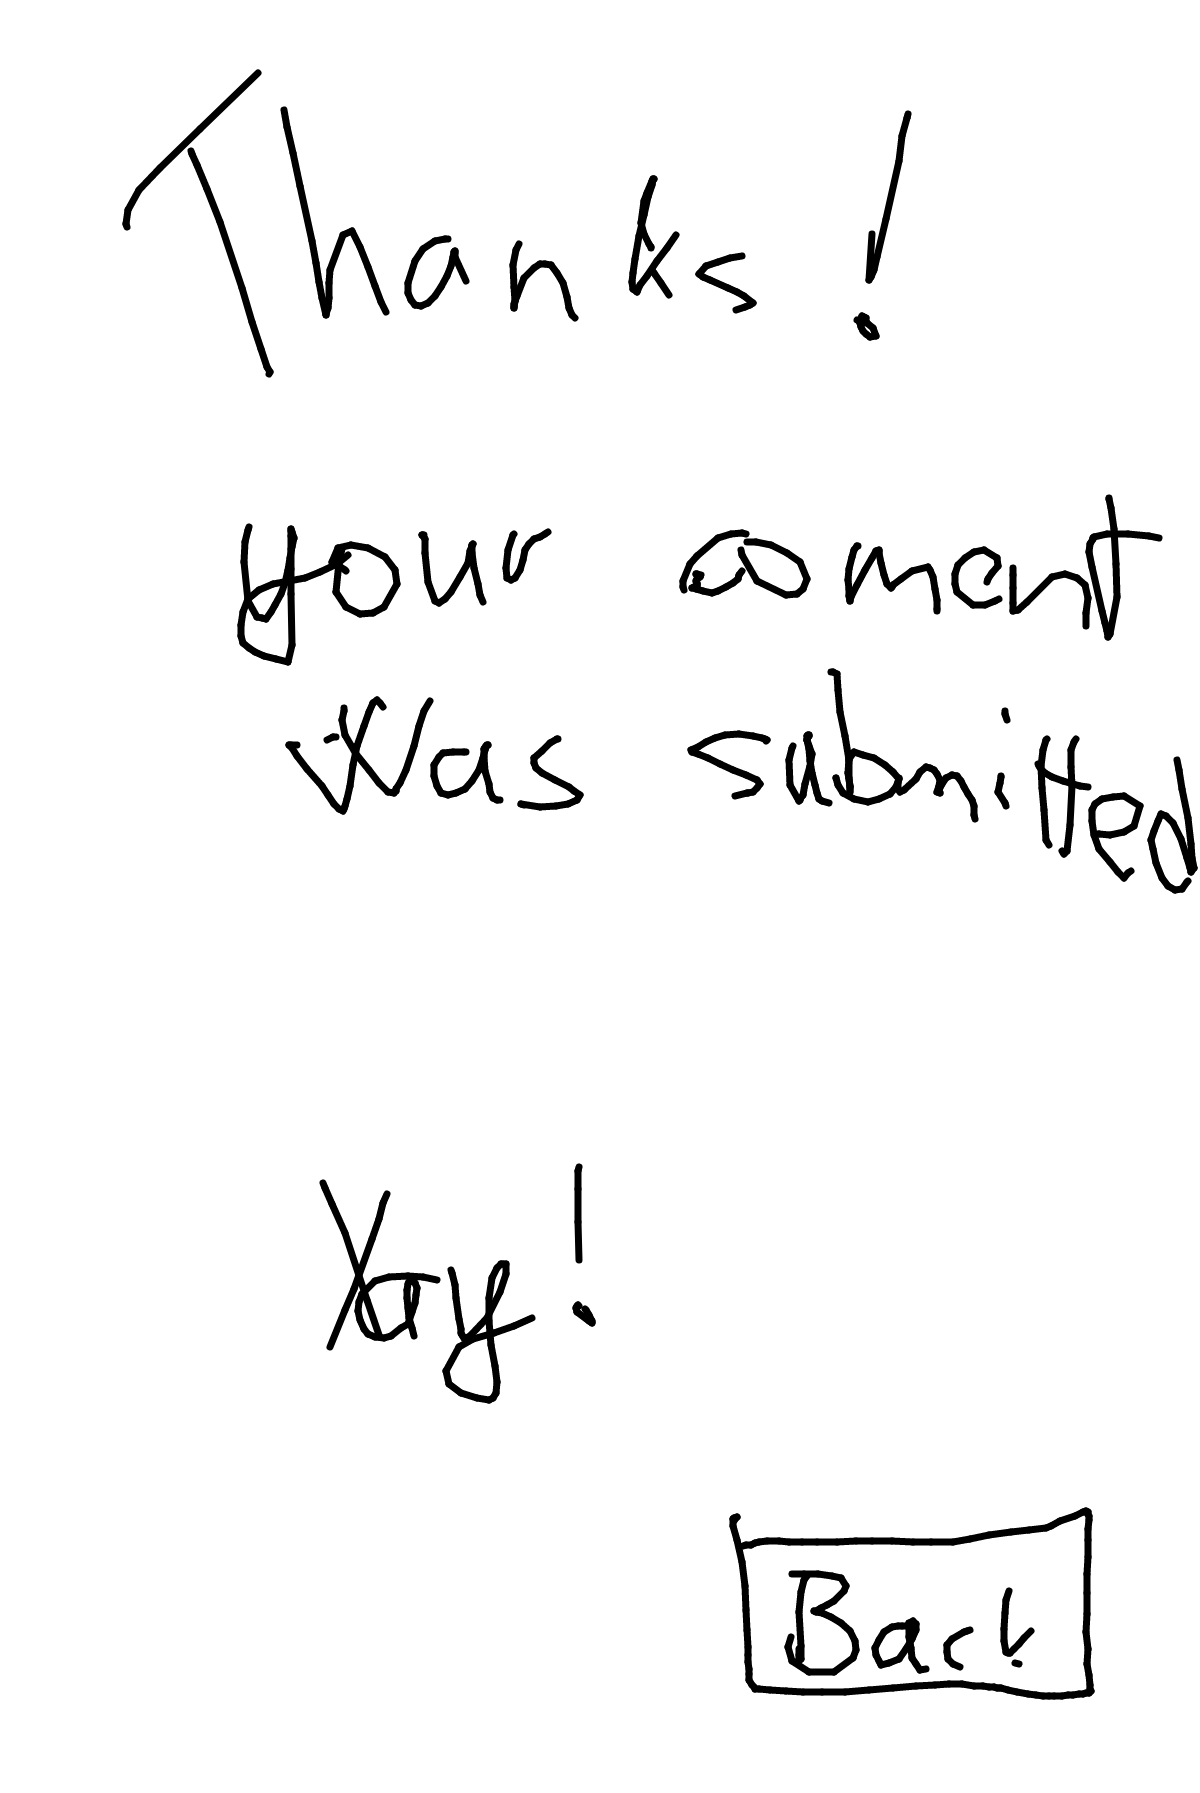 Thanks!
your coment
was submitted
Yay!
Back